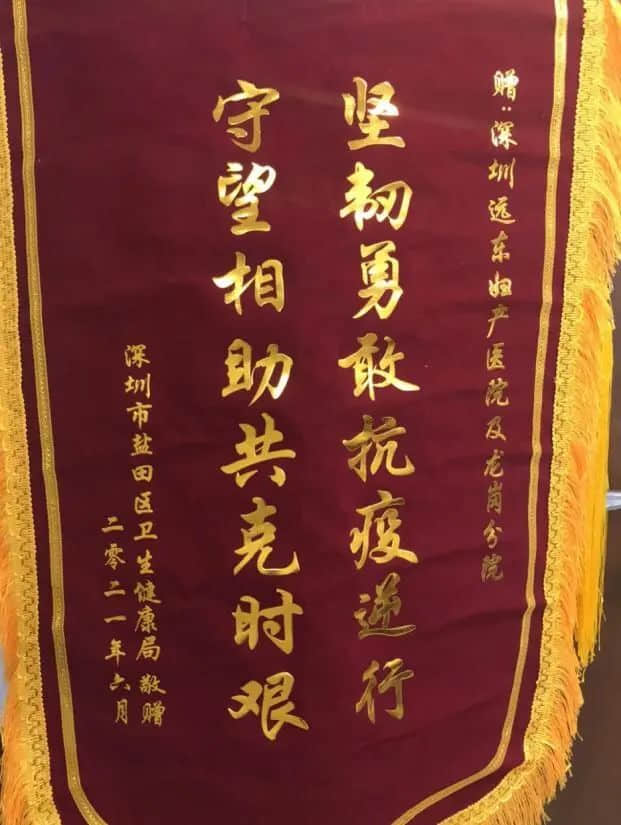 赠:深圳远东妇产医院及龙岗分院
坚韧勇敢抗疫逆行
守望相助共克时艰
深圳市盐田区卫生健康局 敬赠
二零二一年六月